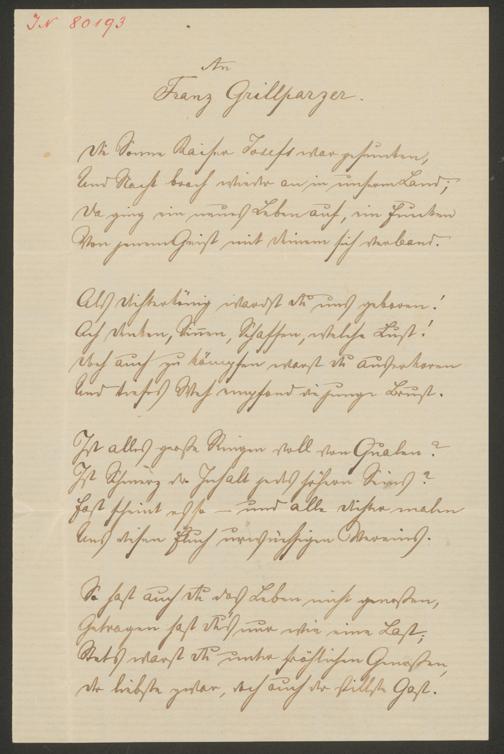 IN 80193
An
Franz Grillparzer.
Die Sonne Kaiser Josefs war gesunken,
Und Nacht brach wieder an in unserm Land;
Da ging ein neues Leben auf, ein Funken
Von jenem Geist mit deinem sich verband.
Als Dichterkönig wardst du uns geboren!
Ach Denken, Sinnen, Schaffen, welche Lust!
Doch auch zu kämpfen warst du auserkoren
Und tiefes Weh empfand die junge Brust.
Ist alles große Ringen voll von Qualen?
Ist Schmerz der Inhalt jedes höhern Seins?
Fast scheint es so – und alle Dichter malen
Uns diesen Fluch urwüchsigen Vereins.
So hast auch du das Leben nicht genoßen,
Getragen hast du's nur wie eine Last;
Stets warst du unter fröhlichen Genoßen,
Der liebste zwar, doch auch der stillste Gast.